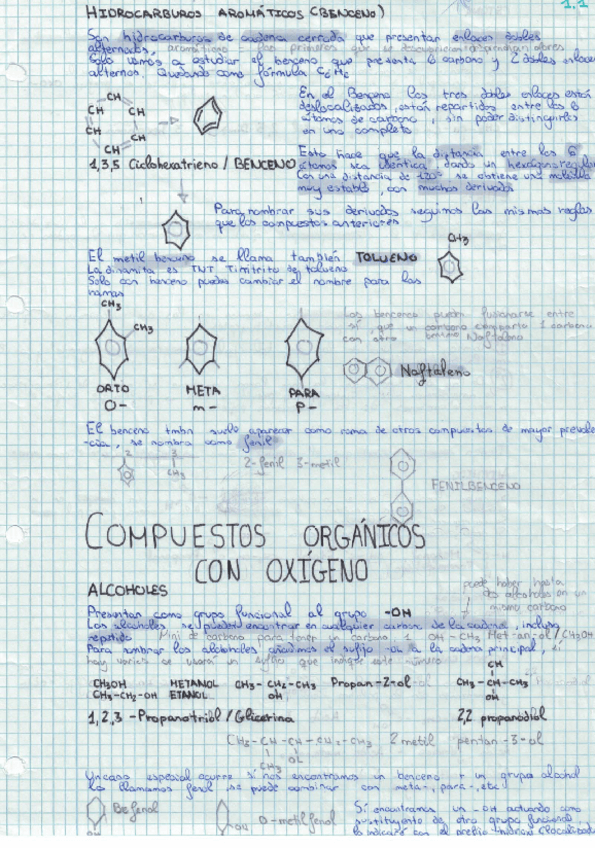 HIDROCARBUROS AROMÁTICOS (BENCENO)
1.1
Son hidrocarburos de cadena cerrada que presentar enlaces dobles
alternados, aromáticos = los primeros que se descubrieron tenían olores
Solo vamos a estudiar el benceno que presenta 6 carbono y 2 dobles enlaces
alternos. Quedando como fórmula C6H6
CH
CH CH
CH CH
CH
En el Benceno los tres dobles enlaces está
deslocalizados, están repartidos entre los 6
átomos de carbono, sin poder distinguirlos
en uno completo
1,3,5 Ciclohexatrieno / BENCENO
Esto hace que la distancia entre los 6
átomos sea idéntica, dando un hexágono regular
Con una distancia de 120° se obtiene una molécula
muy estable, con muchos derivados
Para nombrar sus derivados seguimos las mismas reglas
que los compuestos anteriores
El metil benceno se llama también TOLUENO
CH3
La dinamita es TNT Trinitrito de tolueno
Solo con benceno puedes cambiar el nombre para las
ramas
CH3
CH3
ORTO META PARA
O- m- P-
Los bencenos pueden fusionarse entre
sí, que un carbono comparta 1 carbono
con otro benceno Naftaleno
Naftaleno
El benceno tmbn suele aparecer como rama de otros compuestos de mayor prevale
-cia, se nombra como fenil
2 3
CH3
2-fenil 3-metil
FENILBENCENO
COMPUESTOS ORGÁNICOS
CON OXÍGENO
ALCOHOLES
puede haber hasta
dos alcoholes en un
mismo carbono
Presentan como grupo funcional al grupo -OH
Los alcoholes se pueden encontrar en cualquier carbono de la cadena, incluso
repetido Mini de carbono para tener un carbono 1 OH-CH3 Met-an-ol / CH3OH
Para nombrar los alcoholes añadimos el sufijo -ol a la cadena principal, si
hay varios se usará un sufijo que indique este número
CH3OH METANOL CH3-CH2-CH3 Propan-2-ol
OH
CH3-CH2-OH ETANOL
CH
CH3-CH-CH3
OH
1,2,3 -Propanotriol / Glicerina
2,2 propanodiol
CH3-CH-CH-CH2-CH3 2 metil pentan-3-ol
CH3 OL
Un caso especial ocurre si nos encontramos un benceno + un grupo alcohol
Lo llamamos fenol, se puede combinar con meta-, para-, etc.
Be fenol
OH
OH
O-metilfenol
Si encontramos un -OH actuando como
sustituyente de otro grupo funcional
lo indicaré con el prefijo hidroxi (localizado